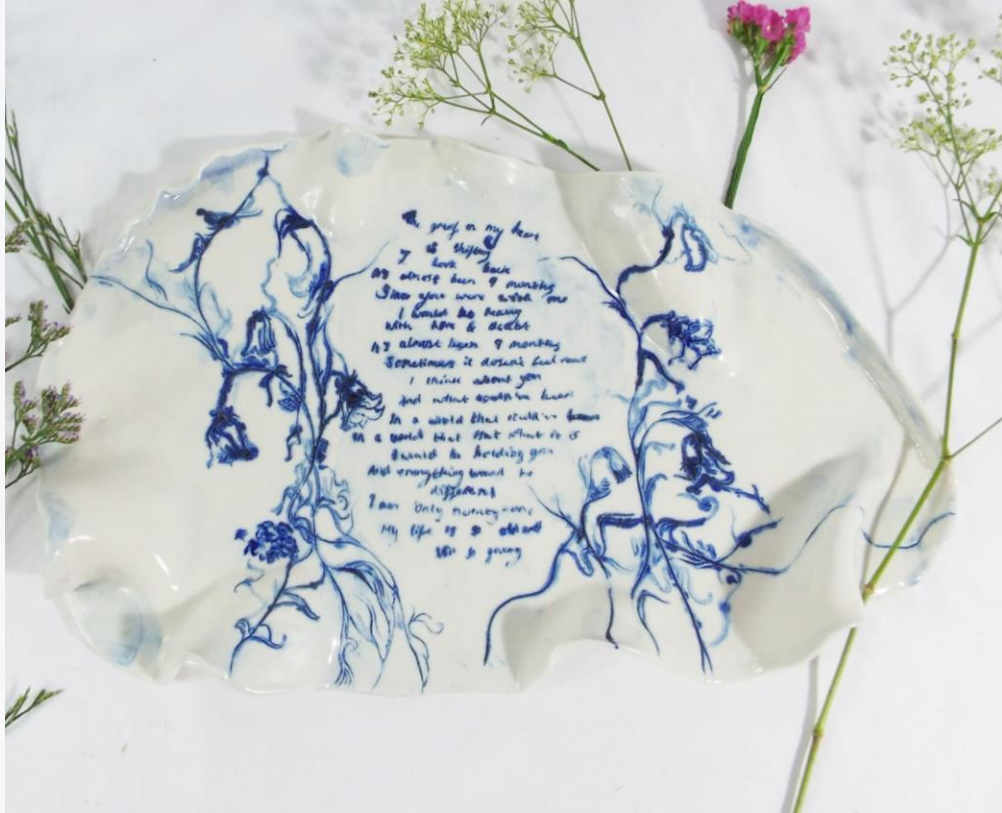 The grief in my heart
is shifting
I look back
It's almost been 9 months
Since you were with me
I would be heavy
with hope & doubt
It's almost been 9 months
Sometimes it doesn't feel real
I think about you
And what could've been
In a world that could've
In a world that isn't what it is
I would be holding you
And everything would be
different
I am only twenty-one
My life is so
still so young